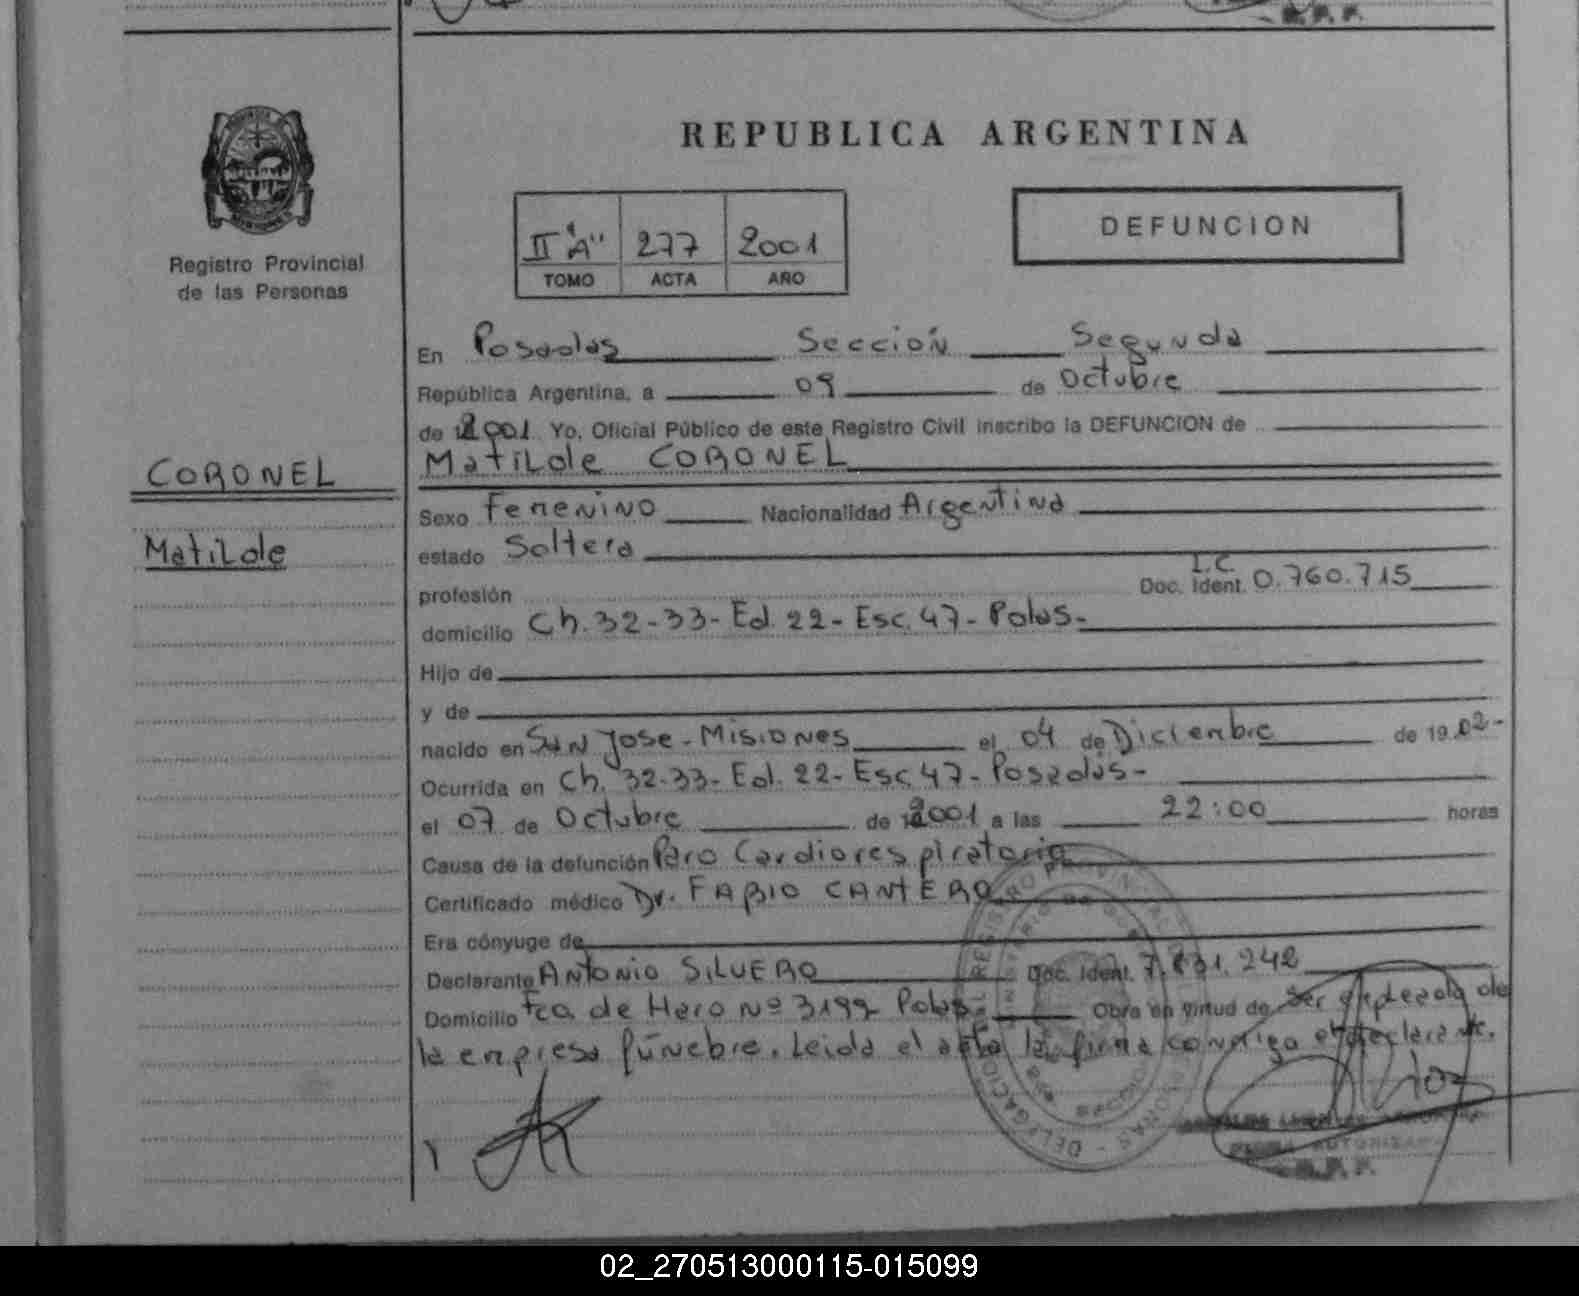 REPUBLICA ARGENTINA
Registro Provincial
de las Personas
II "A" 277 2001
TOMO ACTA AÑO
DEFUNCION
En Posadas Sección Segunda
República Argentina, a 09 de Octubre
de 2001 Yo, Oficial Público de este Registro Civil inscribo la DEFUNCION de
CORONEL
Matilde CORONEL
Sexo Femenino Nacionalidad Argentina
Matilde
estado Soltera
profesión Doc. Ident. L.C 0.760.715
domicilio Ch. 32-33- Ed. 22- Esc. 47- Pdas-
Hijo de
y de
nacido en San Jose - Misiones el 04 de Diciembre de 1902-
Ocurrida en Ch. 32-33- Ed. 22- Esc 47- Posadas-
el 07 de Octubre de 2001 a las 22:00 horas
Causa de la defunción Paro Cardiorespiratorio
Certificado médico Dr. FABIO CANTERO
Era cónyuge de
Declarante Antonio SILVERO Doc. Ident. 7.831.242
Domicilio Fco. de Haro Nº 3192 Pdas. Obra en virtud de ser empleado de
la empresa fúnebre. Leida el acta la firma conmigo el declarante.
02_270513000115-015099